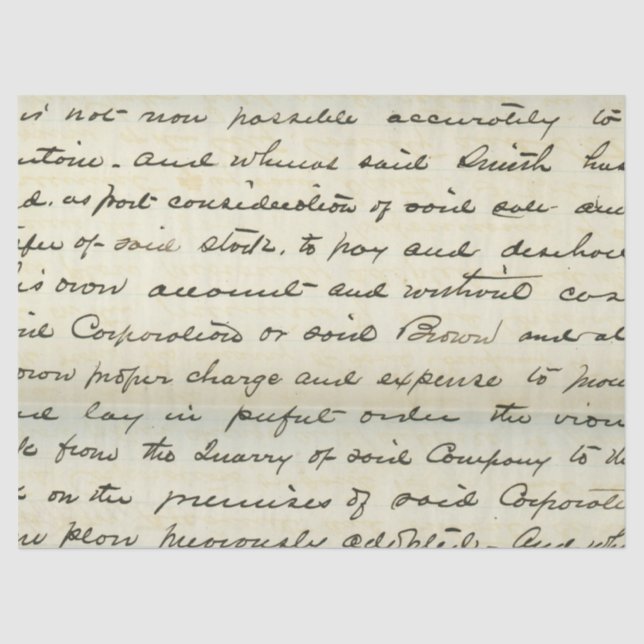 is not now possible accurately to
And whereas said Smith has
as part consideration of said sale
of said stock, to pay and
his own account and without cos
Corporation or said Brown and at
own proper charge and expense to
lay in perfect order the
from the Quarry of said Company to
on the premises of said Corporati
plan previously adopted - And wh